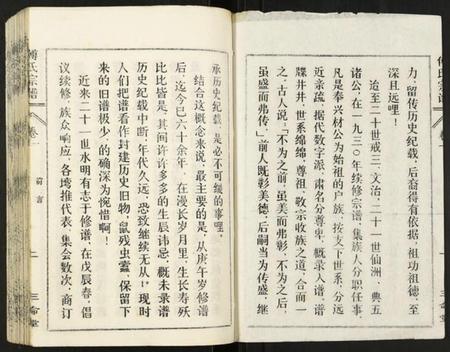 力，留传历史纪载，后裔得有依据，祖功祖德，至
深且远哩！
迨至二十世戒三、文治、二十一世仙洲、典五
诸公，在一九三０年续修宗谱，集族人分职任事，
凡是奉兴材公为始祖的户族，按支下世系，分远
近亲疏，据代数字派，肃名分尊卑，概录入谱，谱
牒井井，世系绵绵，尊祖、敬宗收族之道，合而一
之，古人说：「不为之前，虽美而弗彰，不为之后，
虽盛而弗传，」前人既彰美德，后嗣当为传盛，继
承历史纪载，是必不可缓的事哩。
结合这概念来说，最主要的是，从庚午岁修谱
后，迄今巳六十余年，在漫长岁月里，生长寿殁
比比皆是，其间许许多多的生辰讳忌，概未录谱
历史纪载中断，年代久远，恐致继续无从！现时
人们把谱看作封建历史旧物，鼠残虫蠹，保留下
来的旧谱极少，的确深为惋惜啊！
近来二十一世水明有志于修谱，在戊辰春，倡
议续修，族众响应，各塆推代表，集会数次，商订
傅氏宗谱
卷一
前言
一
三命堂